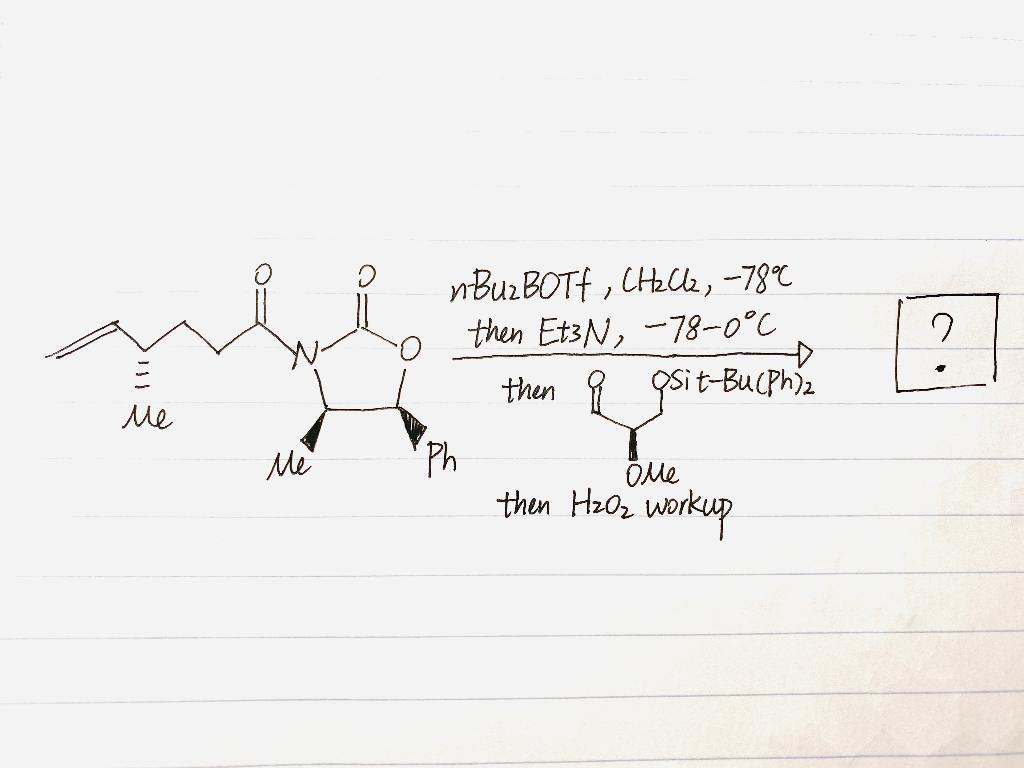 O O
N O
Me
Me Ph
nBu2BOTf, CH2Cl2, -78°C
then Et3N, -78-0°C
then O OSi t-Bu(Ph)2
OMe
then H2O2 workup
?